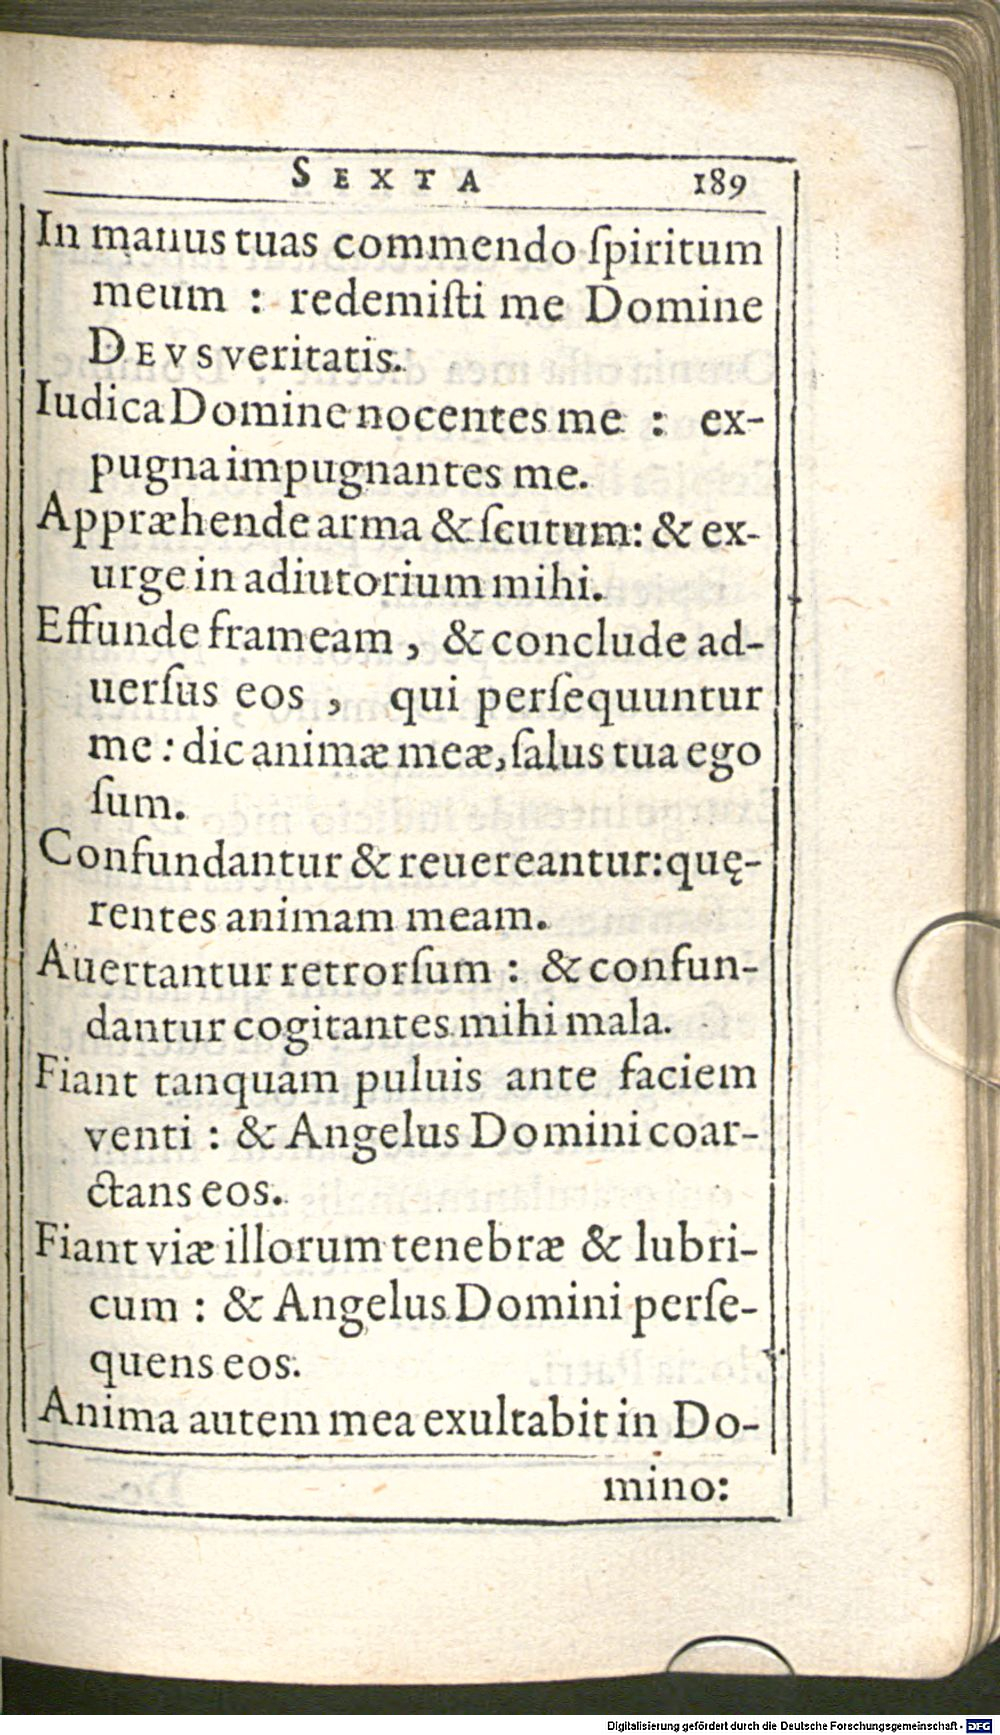 SEXTA 189
In manus tuas commendo ſpiritum
meum : redemiſti me Domine
DEVS veritatis.
Iudica Domine nocentes me : ex-
pugna impugnantes me.
Appræhende arma & ſcutum: & ex-
urge in adiutorium mihi.
Effunde frameam , & conclude ad-
uerſus eos , qui perſequuntur
me : dic animæ meæ, ſalus tua ego
ſum.
Confundantur & reuereantur: quę-
rentes animam meam.
Auertantur retrorſum : & confun-
dantur cogitantes mihi mala.
Fiant tanquam puluis ante faciem
venti : & Angelus Domini coar-
ctans eos.
Fiant viæ illorum tenebræ & lubri-
cum : & Angelus Domini perſe-
quens eos.
Anima autem mea exultabit in Do-
mino:
Digitalisierung gefördert durch die Deutsche Forschungsgemeinschaft - DFG